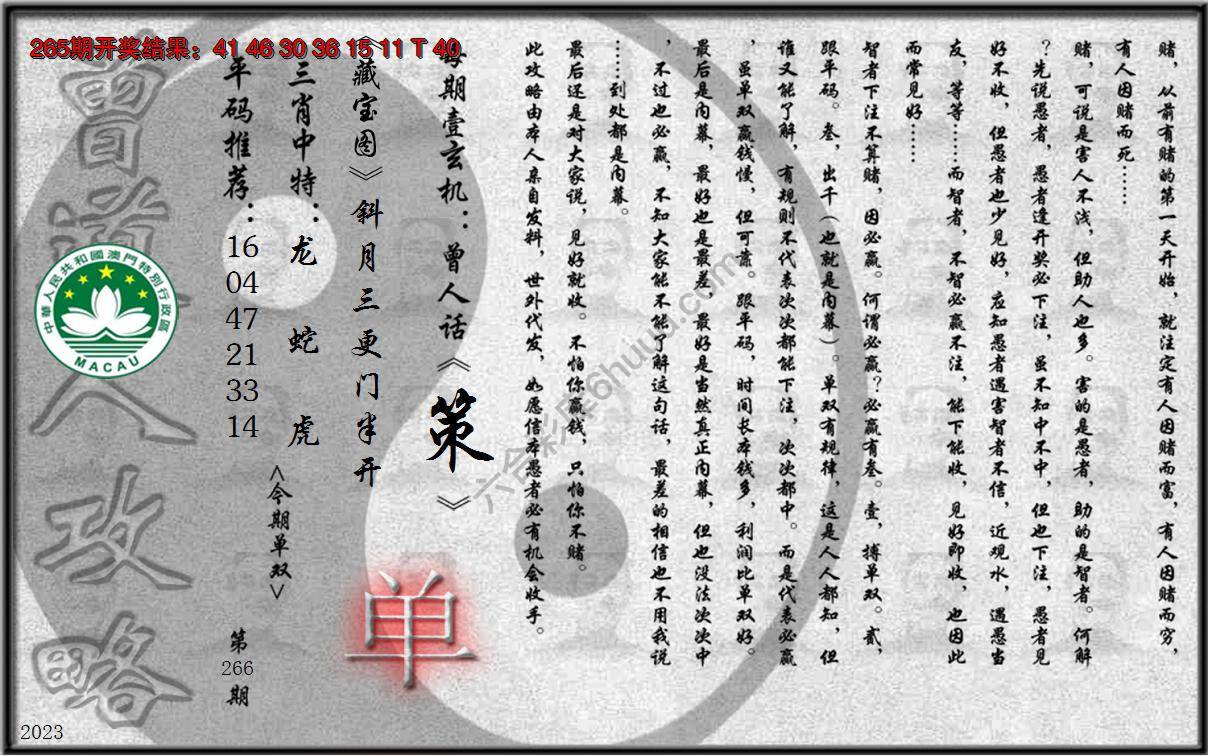 265期开奖结果：41 46 30 36 15 11 T 40
赌，从前有赌的第一天开始，就注定有人因赌而富，有人因赌而穷，
有人因赌而死……
赌，可说是害人不浅，但助人也多。害的是愚者，助的是智者。何解
？先说愚者，愚者逢开奖必下注，虽不知中不中，但也下注，愚者见
好不收，但愚者也少见好，应知愚者遇害智者不信，近观水，遇愚当
友，等等……而智者，不智必赢不注，能下能收，见好即收，也因此
而常见好……
智者下注不算赌，因必赢。何谓必赢？必赢有叁。壹，搏单双。贰，
跟平码。叁，出千（也就是内幕）。单双有规律，这是人人都知，但
谁又能了解，有规则不代表次次都能下注，次次都中。而是代表必赢
，虽单双赢钱慢，但可靠。跟平码，时间长本钱多，利润比单双好。
最后是内幕，最好也是最差，最好是当然真正内幕，但也没法次次中
，不过也必赢，不知大家能不能了解这句话，最差的相信也不用我说
……到处都是内幕。
最后还是对大家说，见好就收。不怕你赢钱，只怕你不赌。
此攻略由本人亲自发料，世外代发，如愿信本愚者必有机会收手。
每期壹玄机：曾人话《策》
《藏宝图》斜月三更门半开
单
三肖中特：龙 蛇 虎
<今期单双>
平码推荐：16 04 47 21 33 14
第266期
曾道人攻略
中華人民共和國澳門特別行政區
MACAU
六合彩库6huuu.com
2023